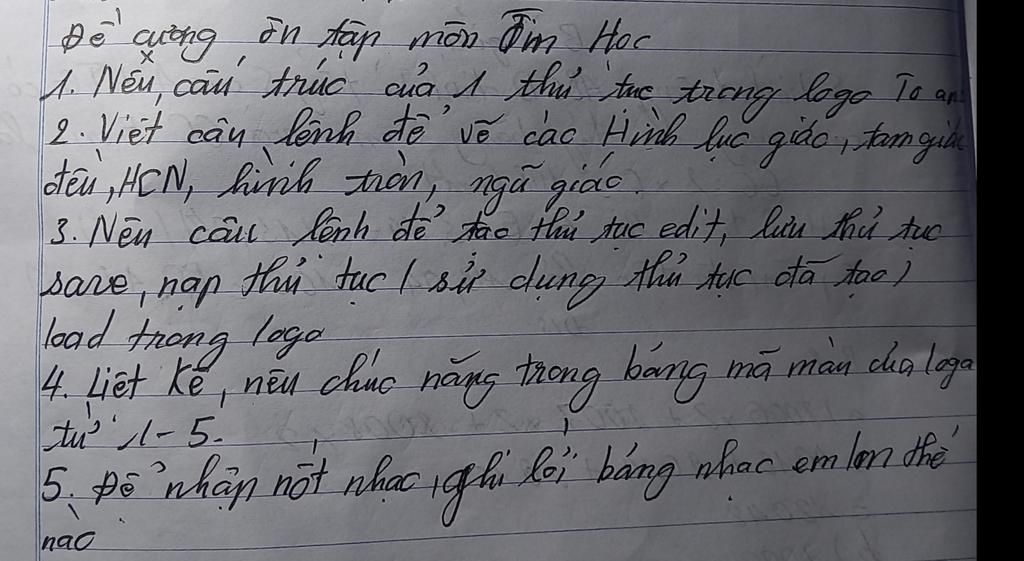 Đề cương ôn tập môn Tin Học
1. Nêu, cấu trúc của 1 thủ tục trong logo
2. Viết câu lệnh để vẽ các Hình lục giác, tam giác
đều, HCN, hình tròn, ngũ giác.
3. Nêu câu lệnh để tạo thủ tục edit, lưu thủ tục
save, nạp thủ tục ( sử dụng thủ tục đã tạo )
load trong logo
4. Liệt kê, nêu chức năng trong bảng mã màu của logo
từ 1-5.
5. Để nhập nốt nhạc, ghi lời bảng nhạc em làm thế
nào